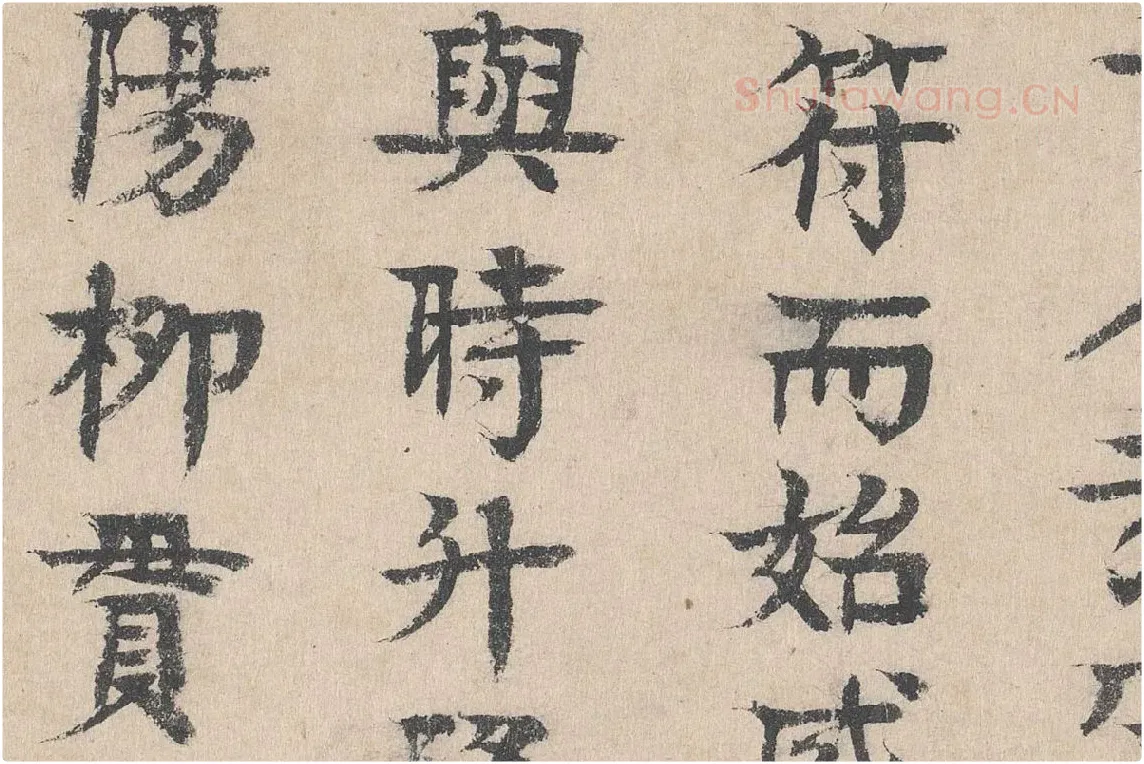 符而始
與時升
陽柳貫
Shufawang.CN